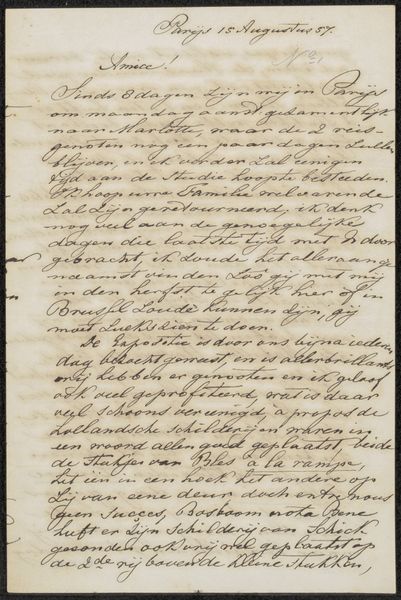 Parijs 15 Augustus 57.
No 1
Amice!
Sinds 8 dagen zijn wij in Parijs
om maandag aanst gezamentlijk
naar Marlotte, waar de 2 reis-
genoten nog een paar dagen zullen
blijven, en ik verder zal eenigen
tijd aan de studie hoop te besteden.
Ik hoop uwe Familie welvarende
zal zijn geretourneerd, ik denk
nog veel aan de genoegelijke
dagen die laatste tijd met U door
gebracht, ik zoude het alleraange
naamst vinden zoo gij met mij
in den herfst te gelijk hier of in
Brussel zoude kunnen zijn, gij
moet zien te doen.
De Expositie is door ons bijna iederen
dag bezocht geweest, en is allerbrillantst
wij hebben er genoten en ik geloof
ook veel geprofiteerd, wat is daar
veel schoons vereenigd, a propos de
Hollandsche Schilderijen waren in
een woord allen goed geplaatst, beide
de Stukjes van Bles à la rampe,
het een in een hoek het andere op
zij van eene deur doch entre nous
geen succes, Bosboom nota Bene
heeft er zijn Schilderij van Schick
gezonden ook vrij wel geplaatst op
de 2de rij boven de kleine Stukken,